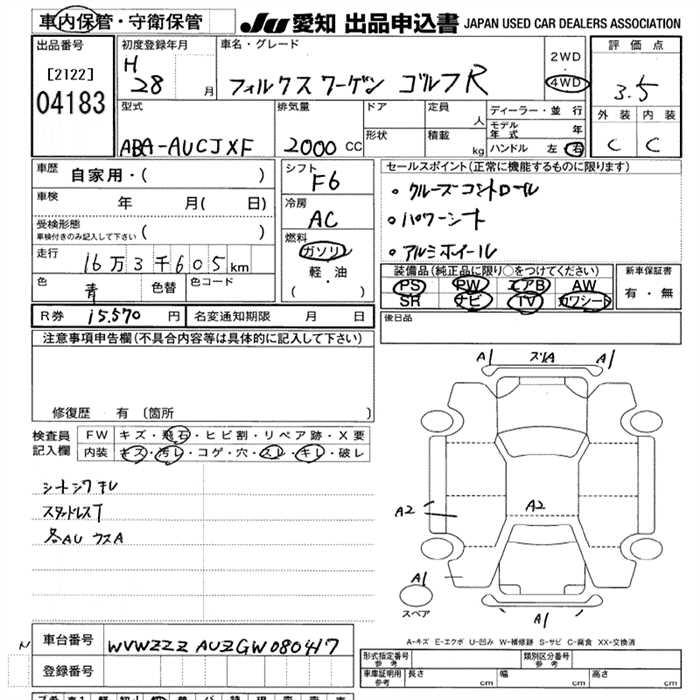 車内保管・守衛保管
JU 愛知 出品申込書 JAPAN USED CAR DEALERS ASSOCIATION
出品番号
[2122]
04183
初度登録年月
H
28 月
車名・グレード
フォルクスワーゲン ゴルフR
2WD
4WD
評価点
3.5
型式
ABA-AUCJXF
排気量
2000 CC
ドア
定員
人
形状
積載
kg
ディーラー・並行
モデル年式 年
ハンドル 左 右
外装 内装
C C
車歴
自家用・( )
シフト
F6
セールスポイント(正常に機能するものに限ります)
・クルーズコントロール
・パワーシート
・アルミホイール
車検
年 月( 日)
冷房
AC
受検形態
車検付きのみ記入して下さい ( )
燃料
ガソリン
軽・油
( )
走行
16万3千605km
装備品(純正品に限り○をつけてください)
PS PW エアB AW
SR ナビ TV カワシート
新車保証書
有・無
色
青
色替
色コード
R券 15.570 円
名変通知期限 月 日
後日品
注意事項申告欄(不具合内容等は具体的に記入して下さい)
修復歴 有 (箇所 )
検査員
記入欄
FW キズ・飛石・ヒビ割・リペア跡・X要
内装 キズ・汚レ・コゲ・穴・スレ・キレ・破レ
シートシワキレ
スタッドレスT
各AU ウスA
A1 ズレA A1
A2
A2
A1
スペア
A1
A-キズ E-エクボ U-凹み W-補修跡 S-サビ C-腐食 XX-交換済
車台番号
WVWZZZAUZGW080417
登録番号
形式指定番号
参考
類別区分番号
参考
車庫証明用
参考
長さ cm
幅 cm
高さ cm